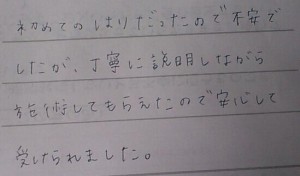 初めてのはりだったので不安で
したが、丁寧に説明しながら
施術してもらえたので安心して
受けられました。